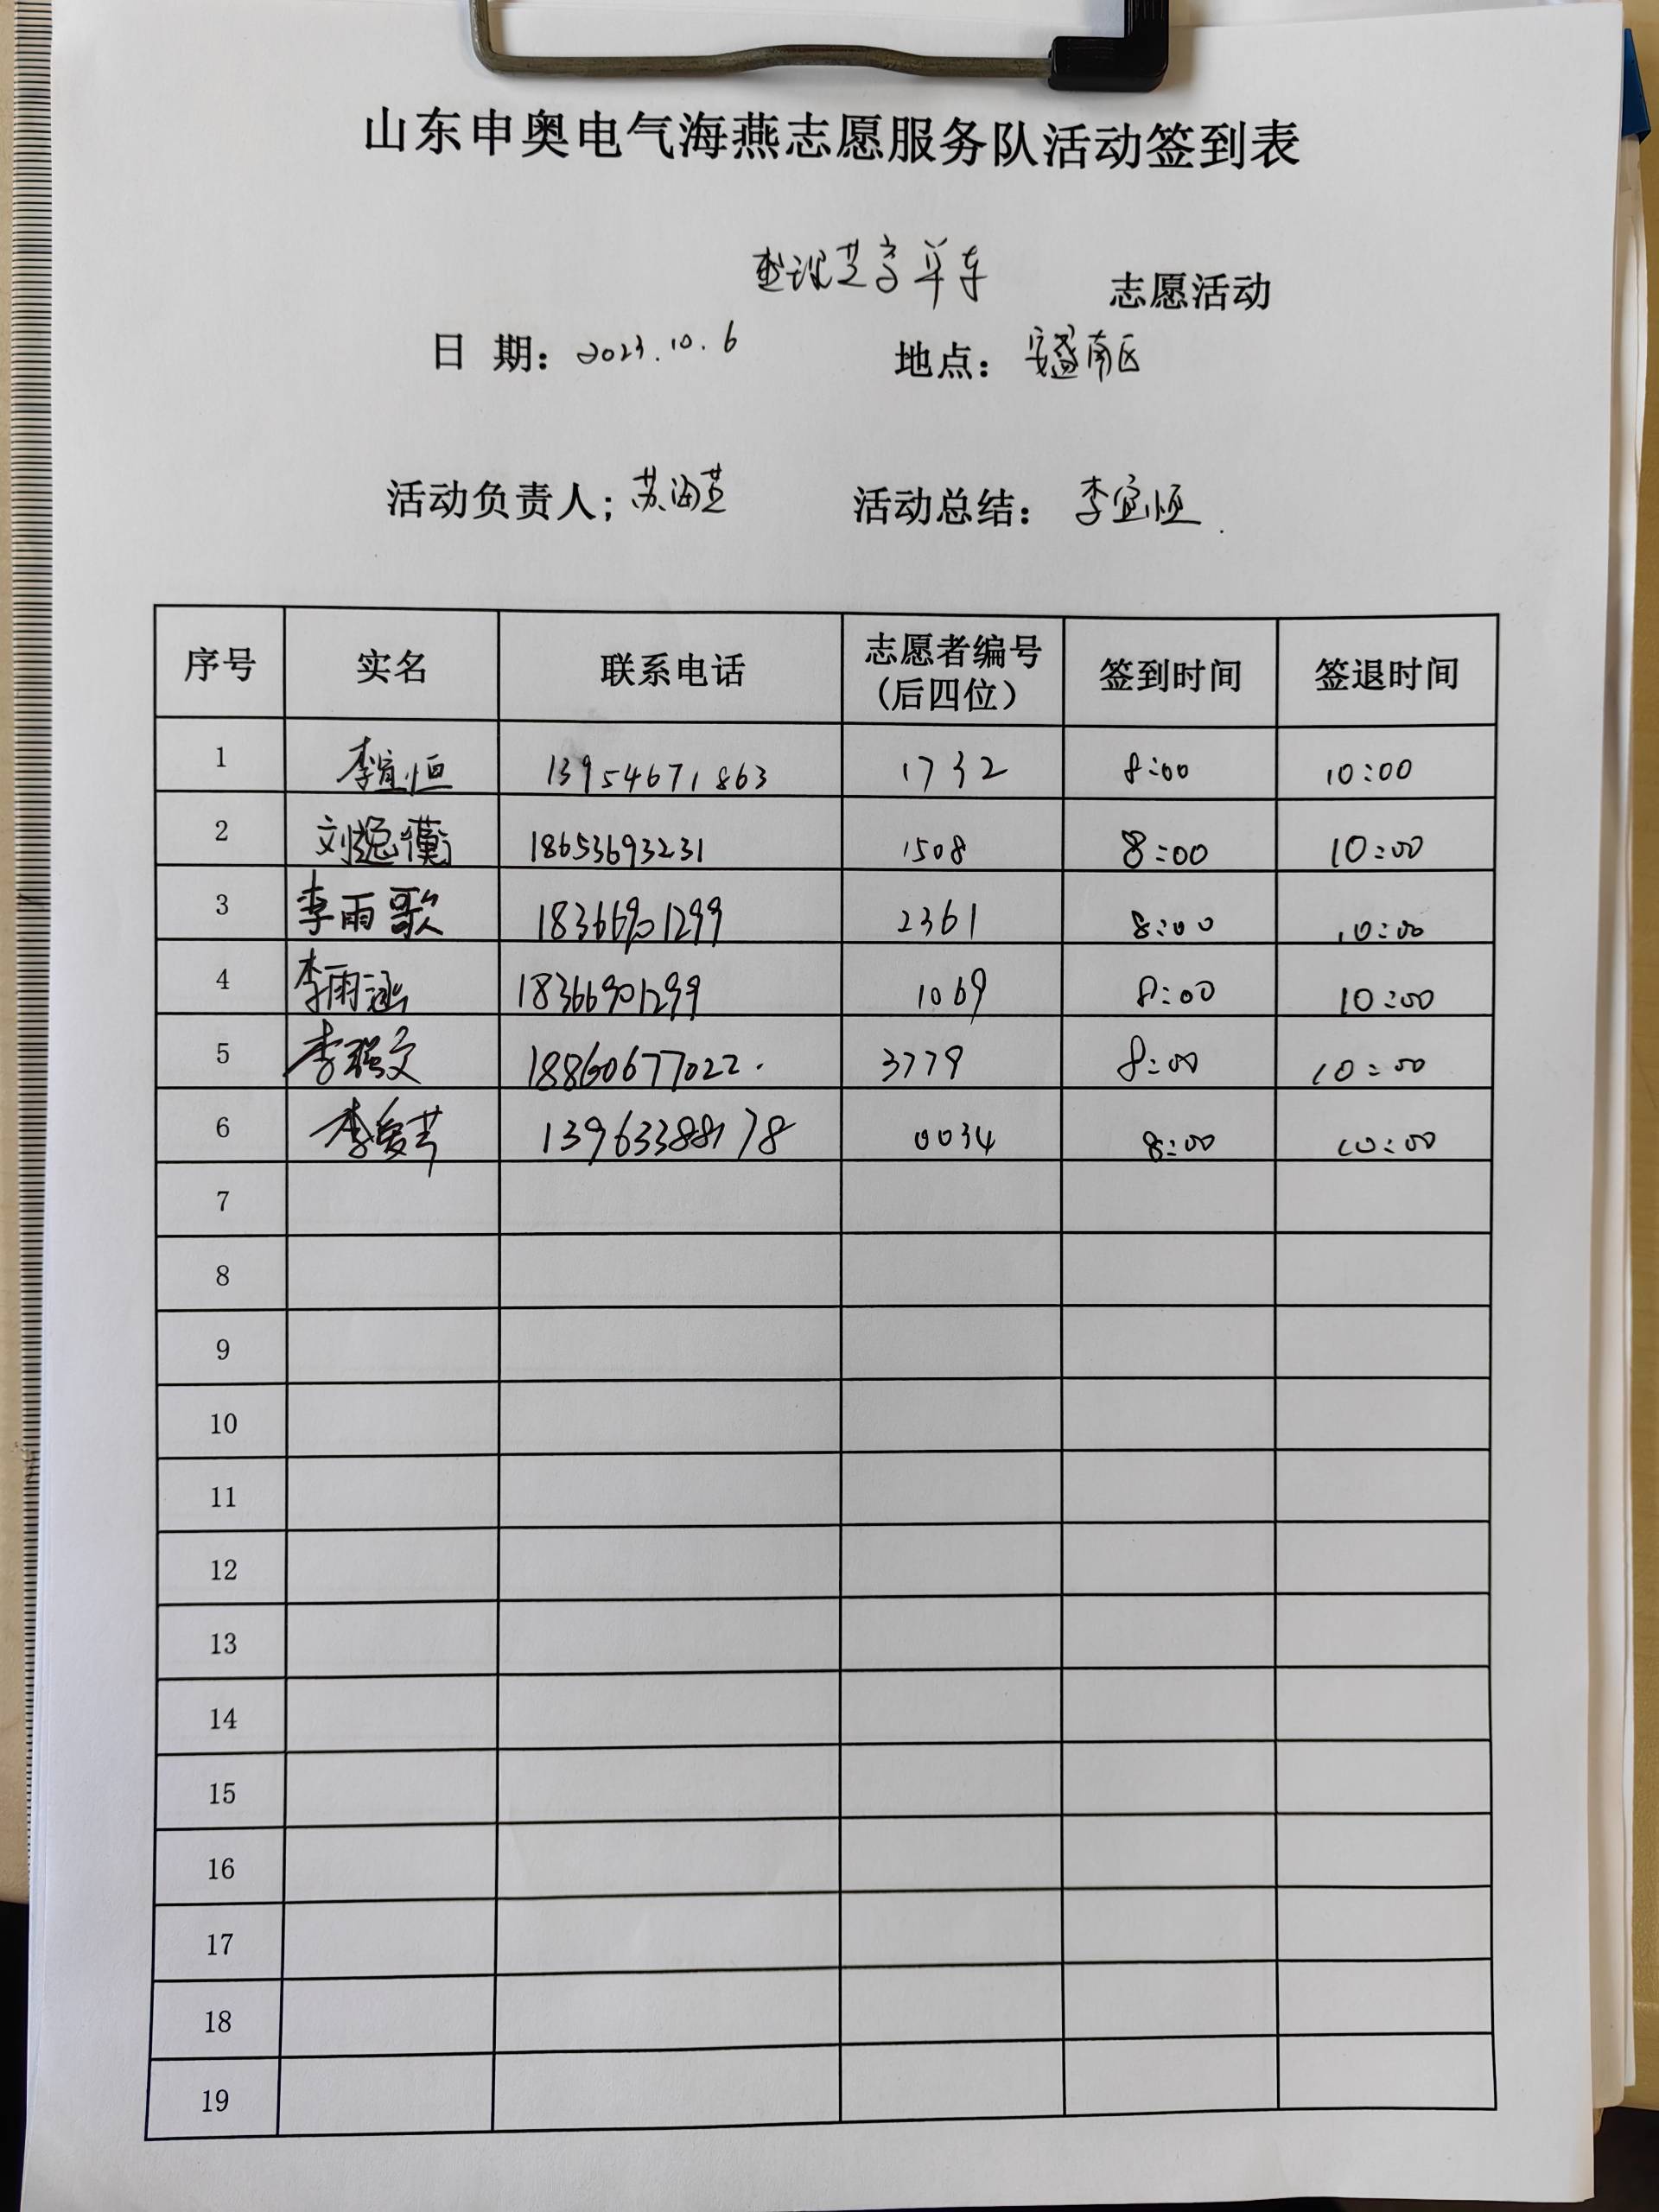 山东申奥电气海燕志愿服务队活动签到表
整理共享单车 志愿活动
日 期：2023.10.6 地点：安盛南区
活动负责人；苏海燕 活动总结：李宜恒.
序号 实名 联系电话 志愿者编号（后四位） 签到时间 签退时间
1 李宜恒 13954671863 1732 8:00 10:00
2 刘逸衡 18653693231 1508 8:00 10:00
3 李雨歌 18366901299 2361 8:00 10:00
4 李雨涵 18366901299 1069 8:00 10:00
5 李 文 18860677022. 3779 8:00 10:00
6 李爱芹 13963388178 0034 8:00 10:00
7
8
9
10
11
12
13
14
15
16
17
18
19